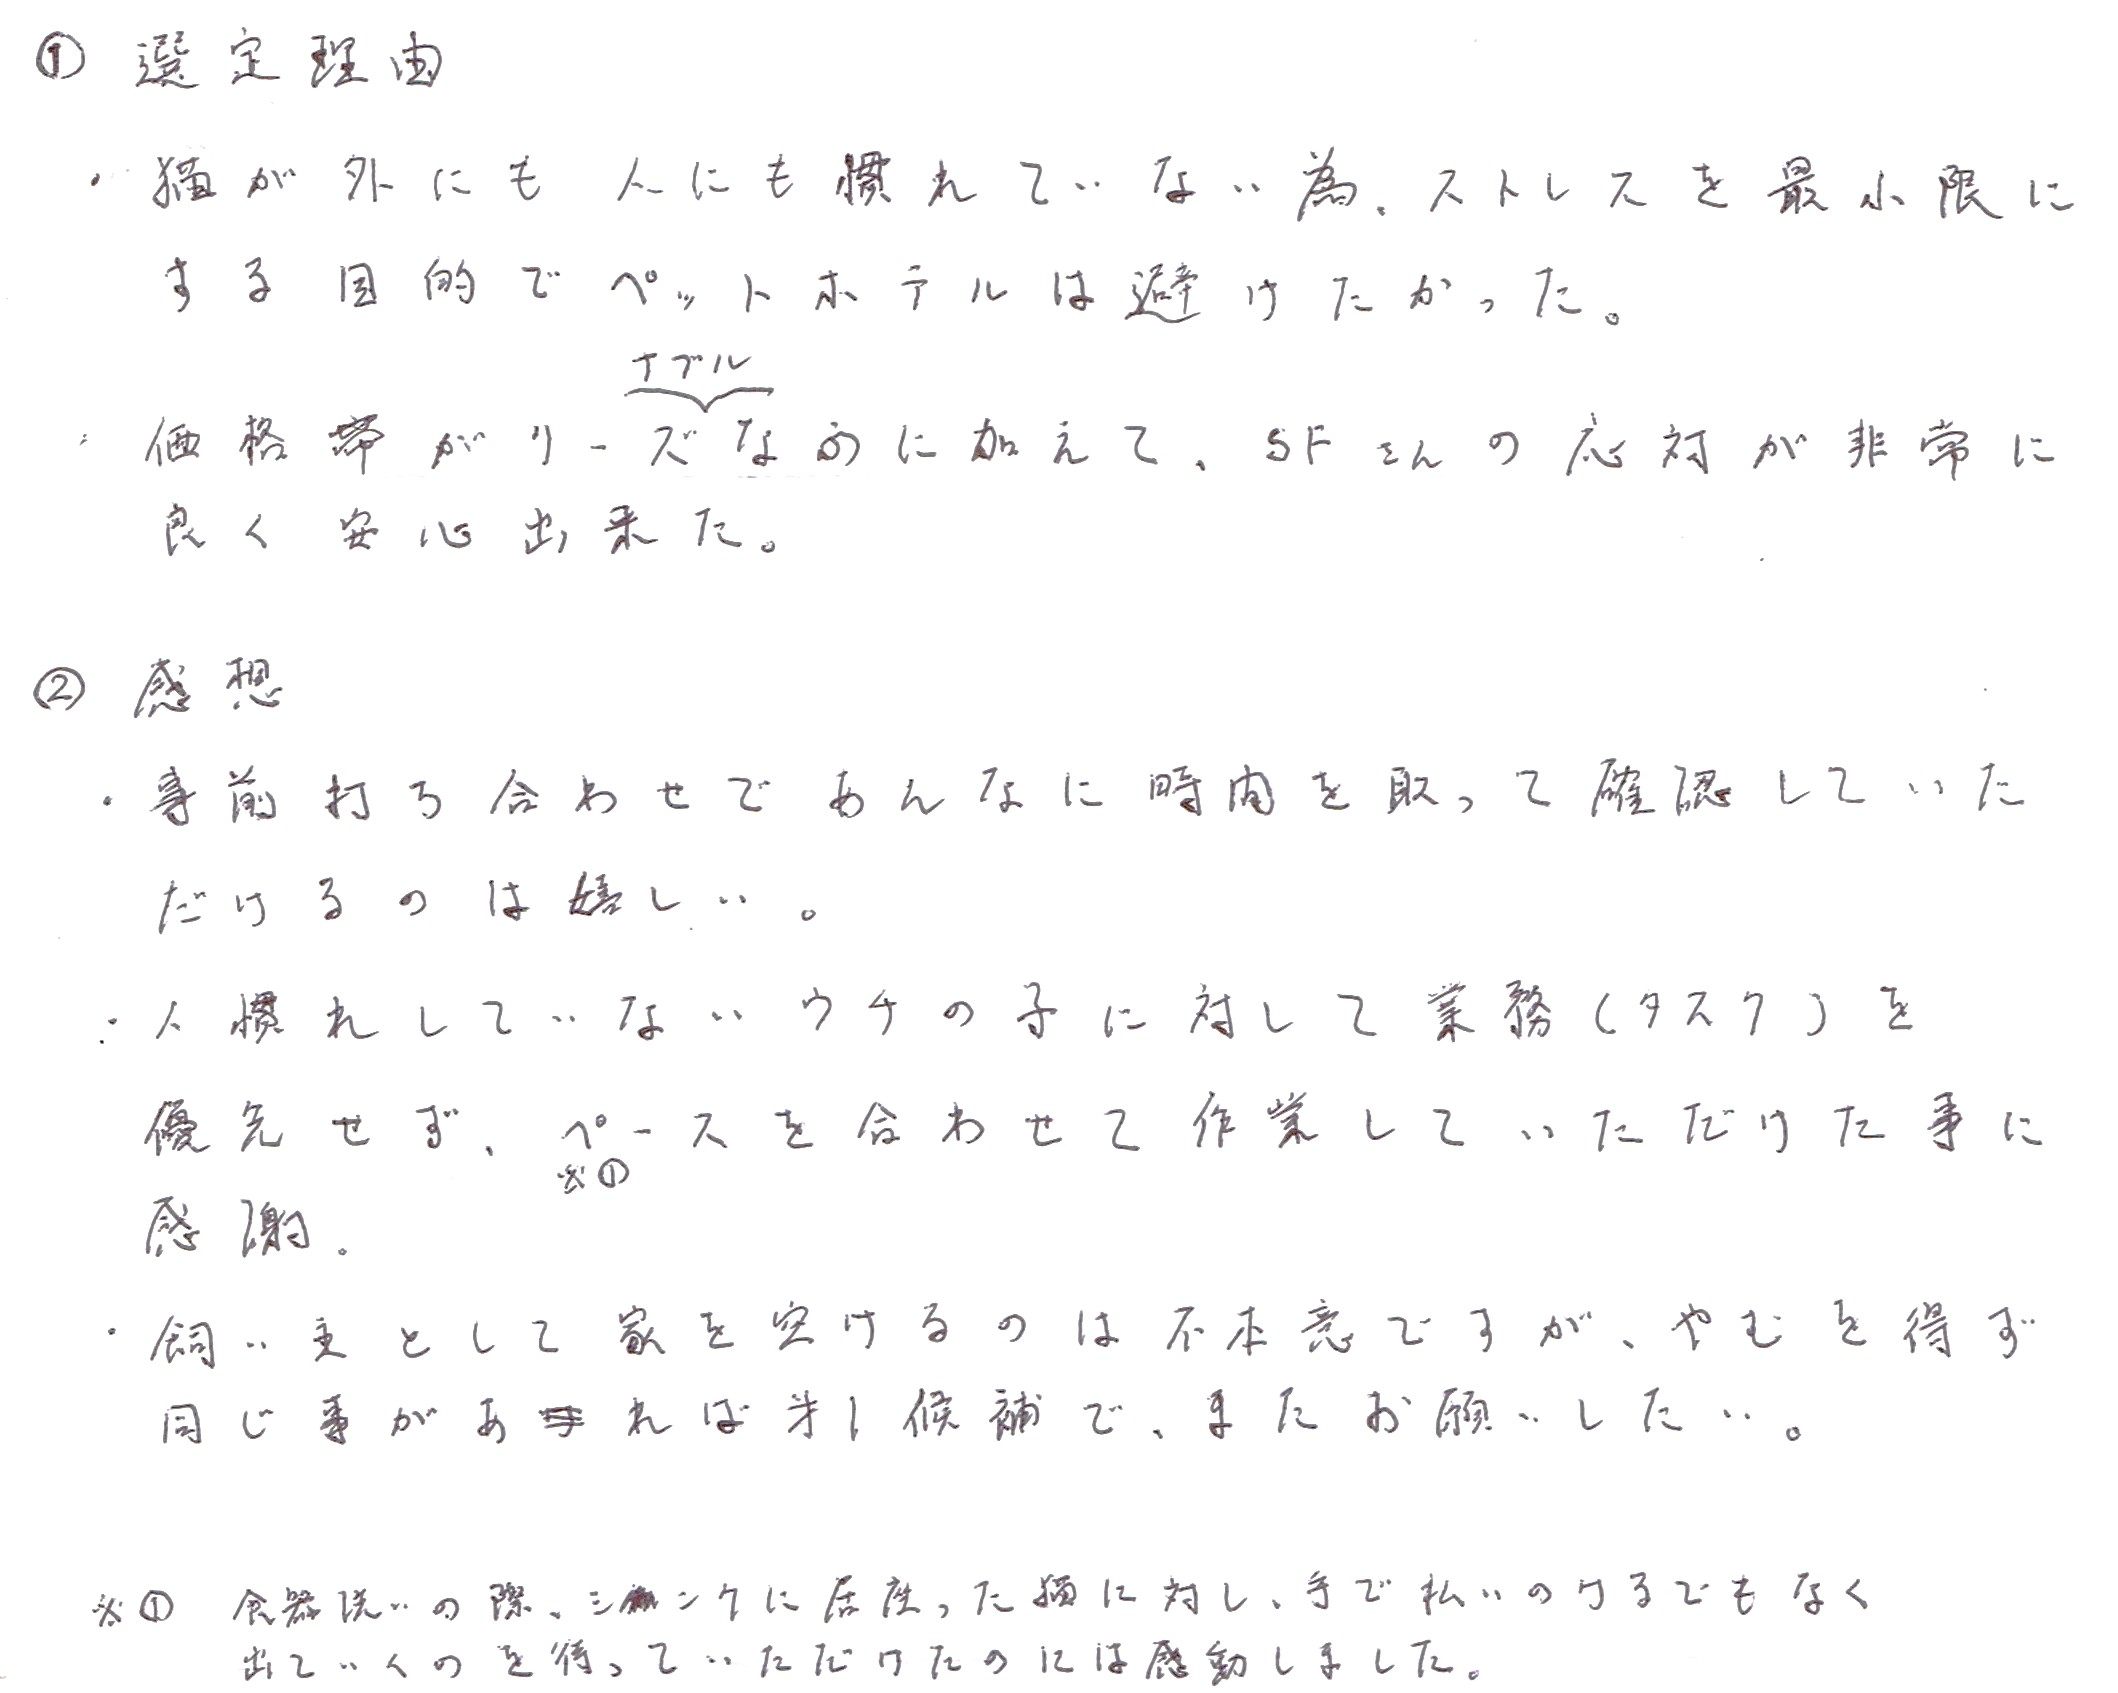 ① 選定理由
・猫が外にも人にも慣れていない為、ストレスを最小限に
する目的でペットホテルは避けたかった。
ナブル
・価格帯がリーズなのに加えて、SFさんの応対が非常に
良く安心出来た。
② 感想
・事前打ち合わせであんなに時間を取って確認していた
だけるのは嬉しい。
・人慣れしていないウチの子に対して業務(タスク)を
優先せず、ペースを合わせて作業していただけた事に
※①
感謝.
・飼い主として家を空けるのは不本意ですが、やむを得ず
同じ事があれば㐧1候補で、またお願いしたい。
※① 食器洗いの際、シンクに居座った猫に対し、手で払いのけるでもなく
出ていくのを待っていただけたのには感動しました。